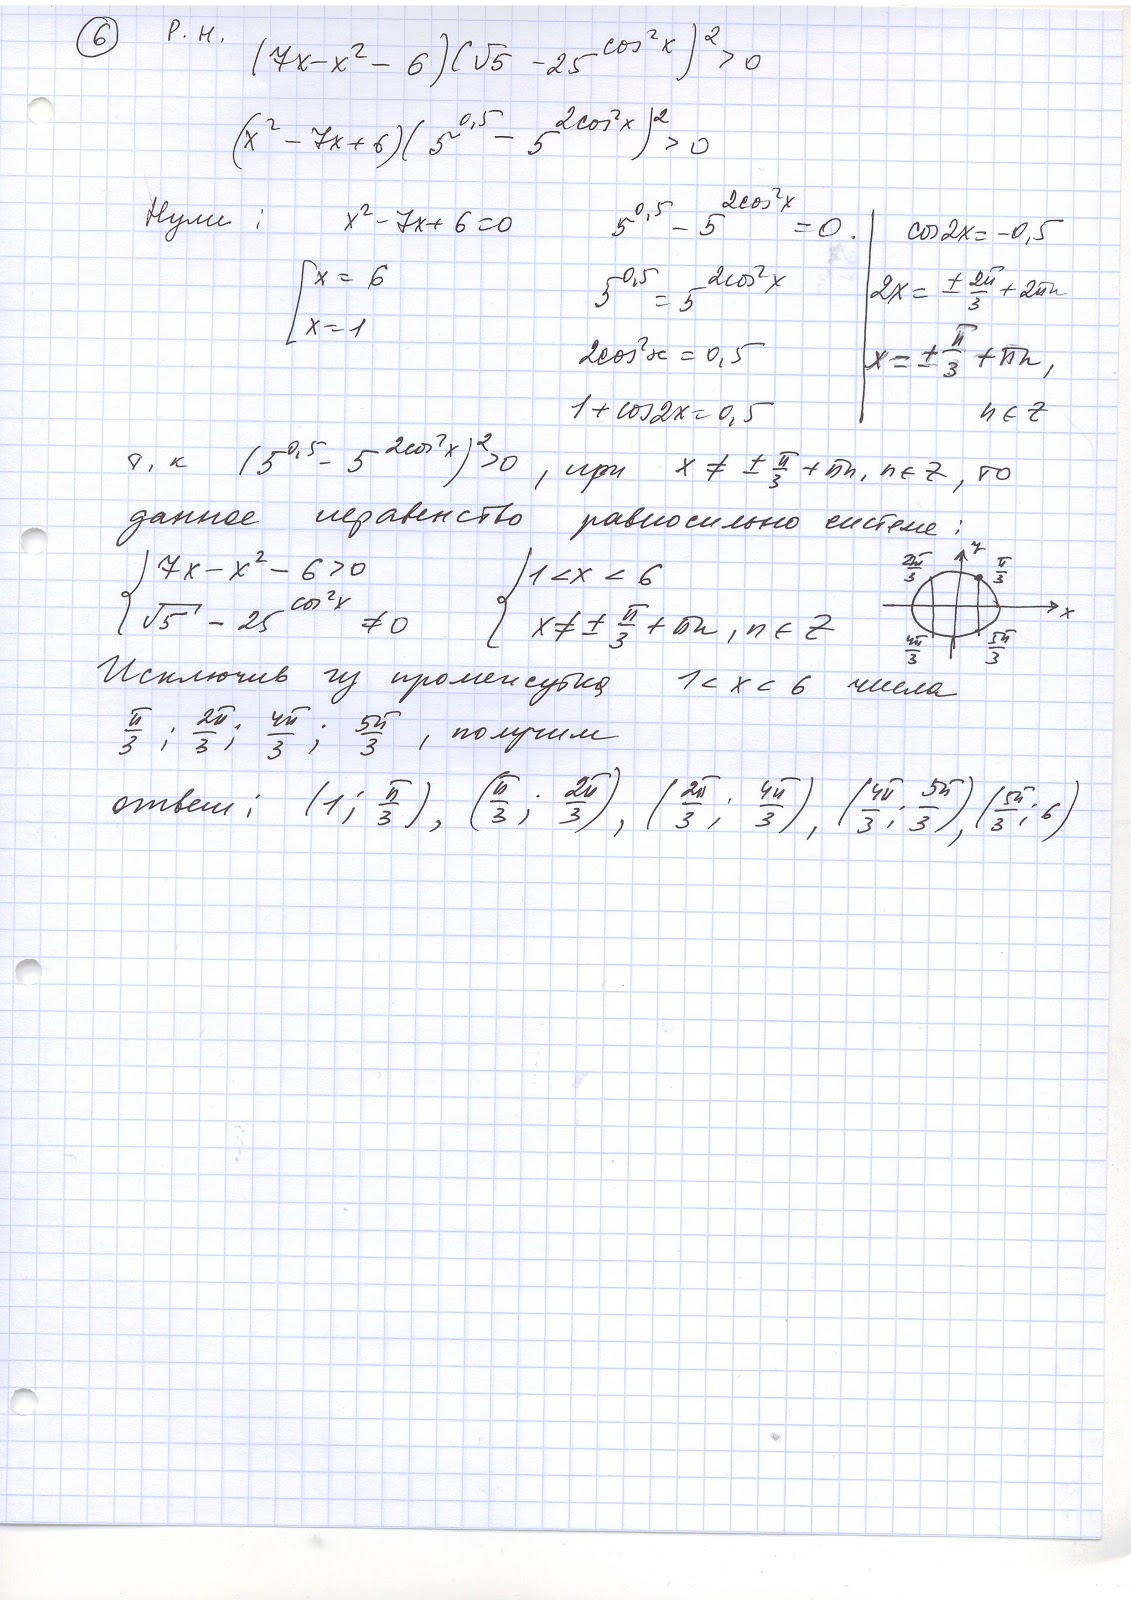 6 Р. Н. (7x-x² - 6)(√5 - 25^{cos²x})² > 0
(x² - 7x + 6)(5^{0,5} - 5^{2cos²x})² > 0
Нули : x² - 7x + 6 = 0
[x = 6
x = 1
5^{0,5} - 5^{2cos²x} = 0.
5^{0,5} = 5^{2cos²x}
2cos²x = 0,5
1 + cos2x = 0,5
cos2x = -0,5
2x = ± 2π/3 + 2πn
x = ± π/3 + πn,
n ∈ Z
т. к (5^{0,5} - 5^{2cos²x})² > 0 , при x ≠ ± π/3 + πn, n ∈ Z , то
данное неравенство равносильно системе :
{7x - x² - 6 > 0
√5 - 25^{cos²x} ≠ 0
{1 < x < 6
x ≠ ± π/3 + πn , n ∈ Z
2π/3 y π/3
x
4π/3 5π/3
Исключив из промежутка 1 < x < 6 числа
π/3 ; 2π/3 ; 4π/3 ; 5π/3 , получим
ответ ; (1 ; π/3), (π/3 ; 2π/3), (2π/3 ; 4π/3), (4π/3 ; 5π/3), (5π/3 ; 6)